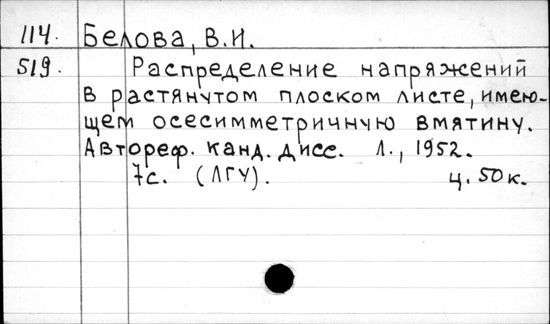 114. Белова, В.И.
519. Распределение напряжений
в растянутом плоском листе, имею-
щем осесимметричную вмятину.
Автореф. канд. дисс. Л., 1952.
7с. (ЛГУ). ц. 50 к.